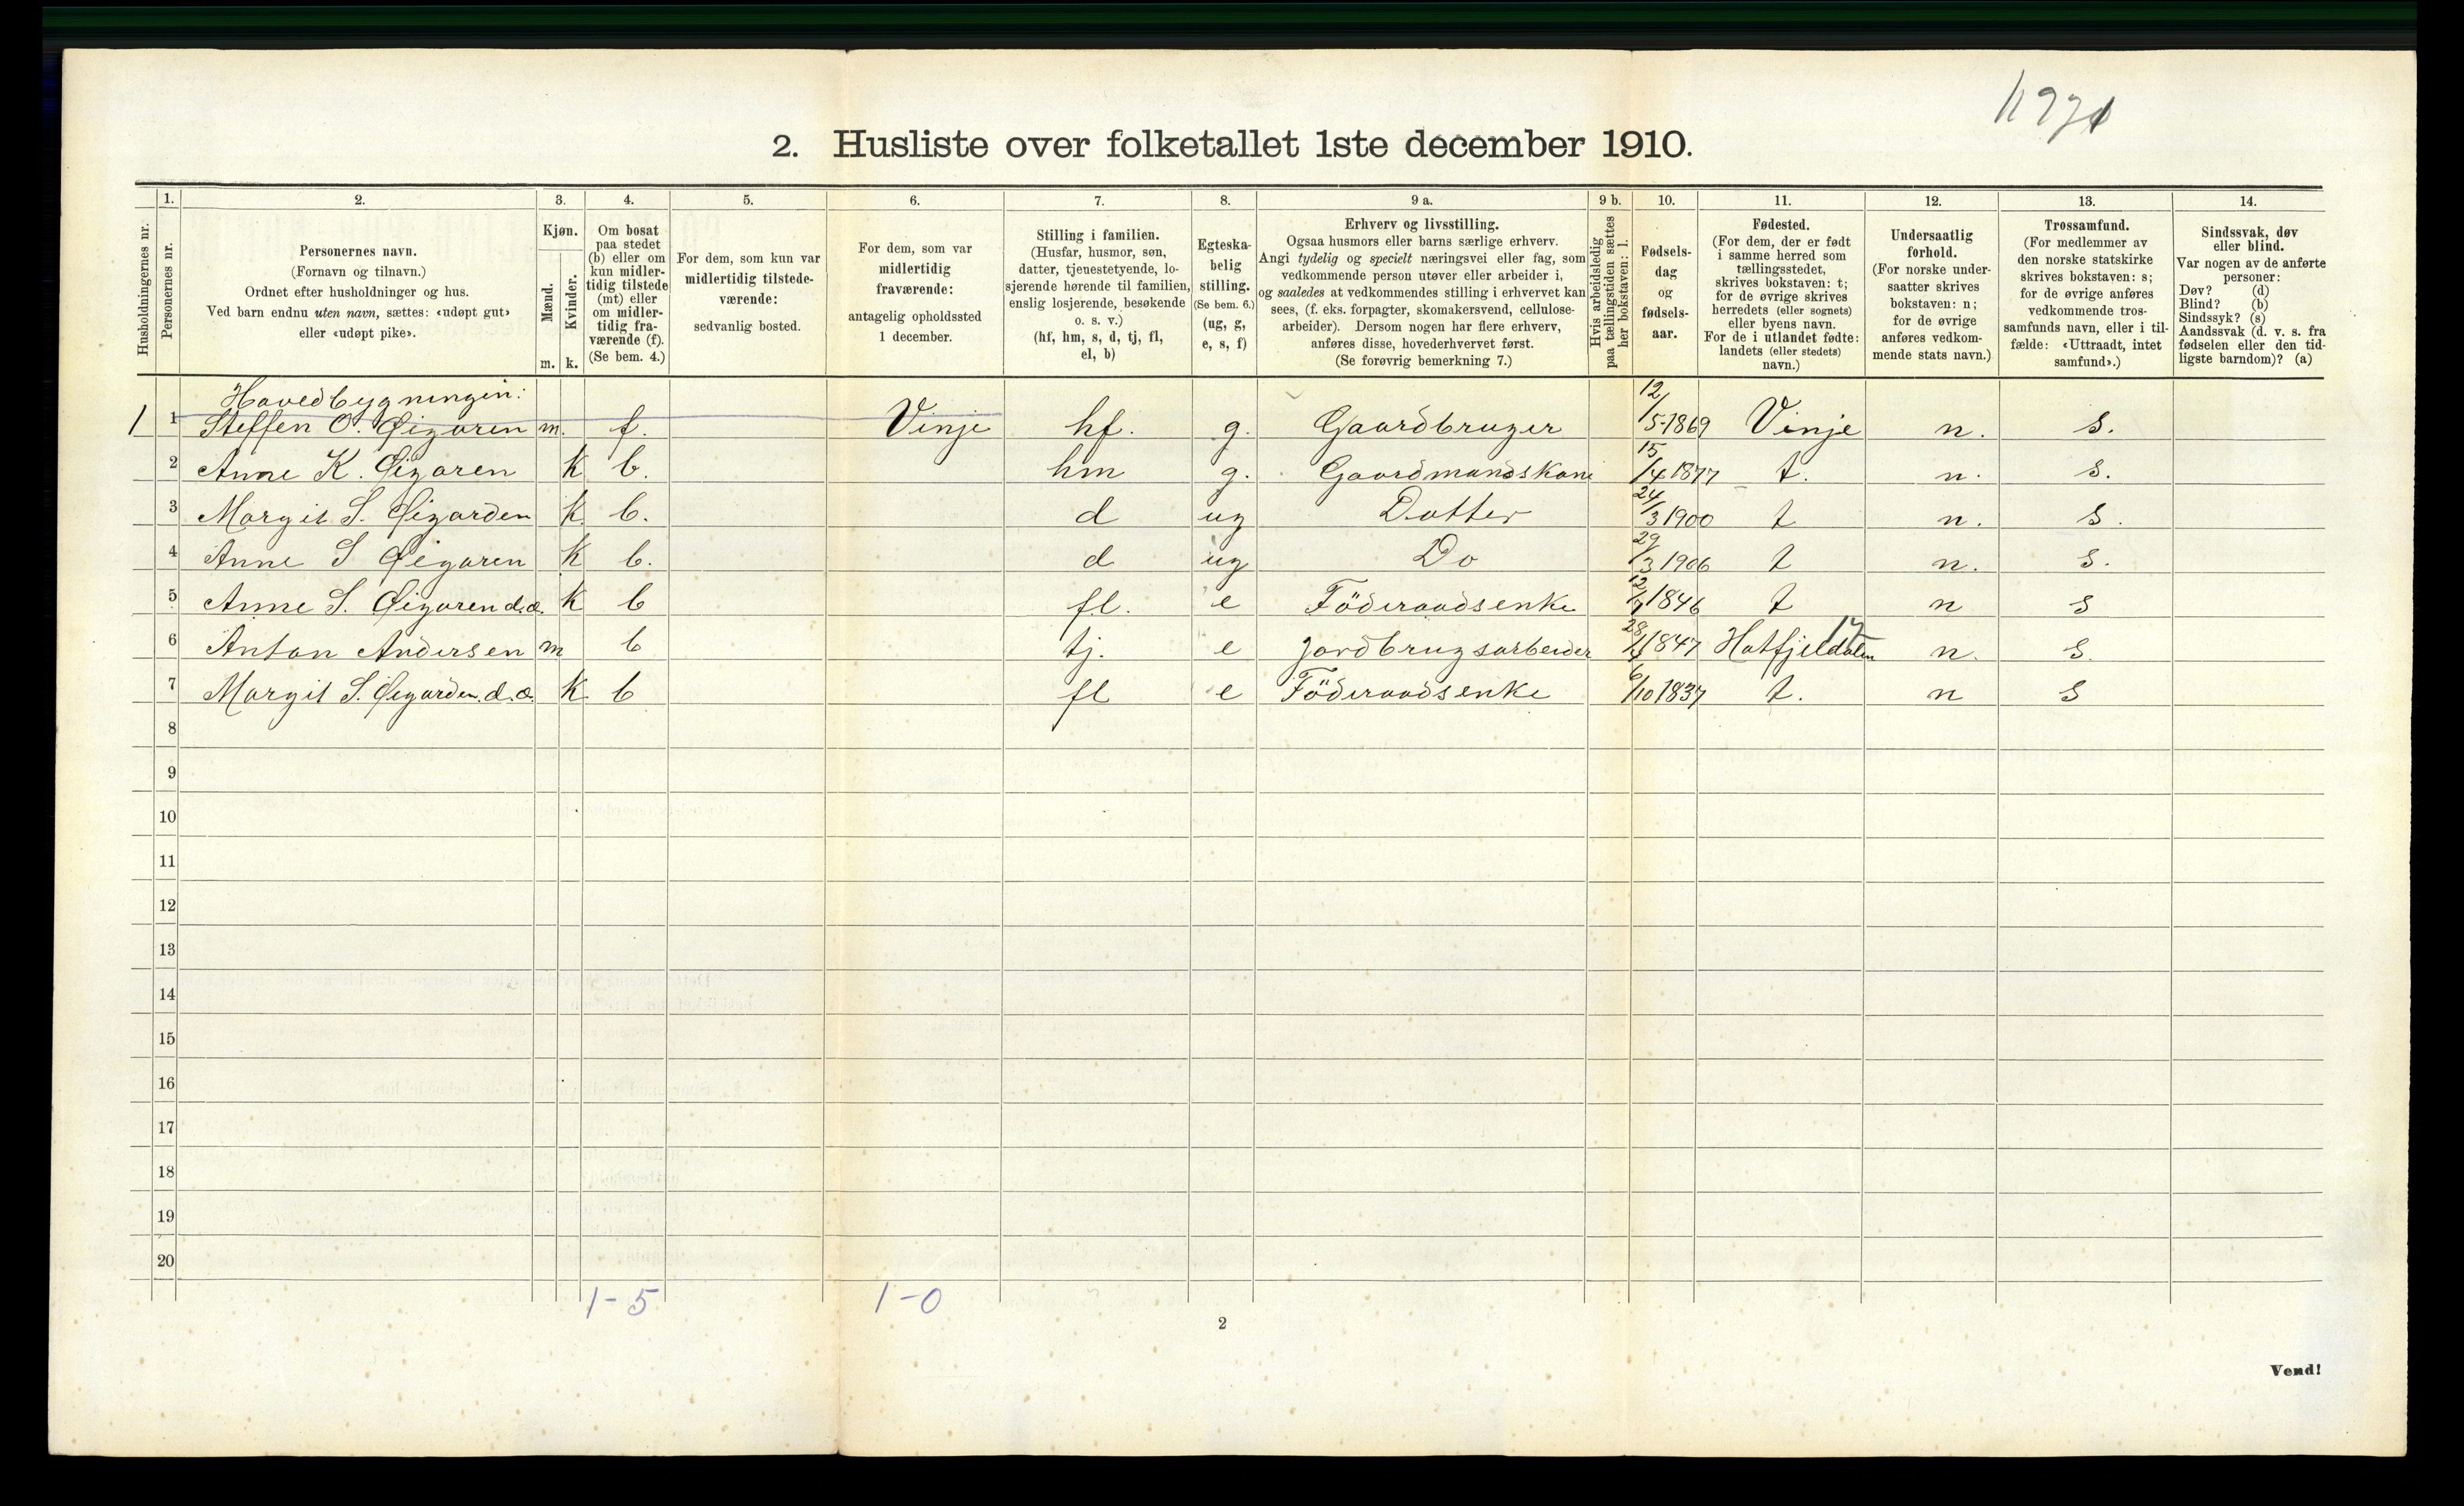 2. Husliste over folketallet 1ste december 1910.
Husholdningernes nr.
1. Personernes nr.
2. Personernes navn.
(Fornavn og tilnavn.)
Ordnet efter husholdninger og hus.
Ved barn endnu uten navn, sættes: «udøpt gut»
eller «udøpt pike».
3. Kjøn.
Mænd. m.
Kvinder. k.
4. Om bosat
paa stedet
(b) eller om
kun midler-
tidig tilstede
(mt) eller
om midler-
tidig fra-
værende (f).
(Se bem. 4.)
5. For dem, som kun var
midlertidig tilstede-
værende:
sedvanlig bosted.
6. For dem, som var
midlertidig
fraværende:
antagelig opholdssted
1 december.
7. Stilling i familien.
(Husfar, husmor, søn,
datter, tjenestetyende, lo-
sjerende hørende til familien,
enslig losjerende, besøkende
o. s. v.)
(hf, hm, s, d, tj, fl,
el, b)
8. Egteska-
belig
stilling.
(Se bem. 6.)
(ug, g,
e, s, f)
9 a. Erhverv og livsstilling.
Ogsaa husmors eller barns særlige erhverv.
Angi tydelig og specielt næringsvei eller fag, som
vedkommende person utøver eller arbeider i,
og saaledes at vedkommendes stilling i erhvervet kan
sees, (f. eks. forpagter, skomakersvend, cellulose-
arbeider). Dersom nogen har flere erhverv,
anføres disse, hovederhvervet først.
(Se forøvrig bemerkning 7.)
9 b. Hvis arbeidsledig
paa tællingstiden sættes
her bokstaven: l.
10. Fødsels-
dag
og
fødsels-
aar.
11. Fødested.
(For dem, der er født
i samme herred som
tællingsstedet,
skrives bokstaven: t;
for de øvrige skrives
herredets (eller sognets)
eller byens navn.
For de i utlandet fødte:
landets (eller stedets)
navn.)
12. Undersaatlig
forhold.
(For norske under-
saatter skrives
bokstaven: n;
for de øvrige
anføres vedkom-
mende stats navn.)
13. Trossamfund.
(For medlemmer av
den norske statskirke
skrives bokstaven: s;
for de øvrige anføres
vedkommende tros-
samfunds navn, eller i til-
fælde: «Uttraadt, intet
samfund».)
14. Sindssvak, døv
eller blind.
Var nogen av de anførte
personer:
Døv? (d)
Blind? (b)
Sindssyk? (s)
Aandssvak (d. v. s. fra
fødselen eller den tid-
ligste barndom)? (a)
Hovedbygningin:
1 1 Steffen O. Øigaren m. f. Vinje hf. g. Gaardbruger 12/5-1869 Vinje n. s.
2 Anne K. Øigaren K b. hm g. Gaardmandskone 15/4 1877 t. n. s.
3 Margit S. Øigarden K b. d ug Datter 24/3 1900 t n. s.
4 Anne S Øigaren K b. d ug Do 29/3 1906 t n. s.
5 Anne S. Øigaren d.æ. K b fl. e Föderaadsenke 12/7 1846 t n s
6 Anton Andersen m b tj. e jordbrugsarbeider 1847 Hatfjeldalen n. s.
7 Margit S. Øigarden. d.æ. K b fl e Föderaadsenke 6/10 1837 t. n s
8
9
10
11
12
13
14
15
16
17
18
19
20
1-5 1-0
2
Vend!